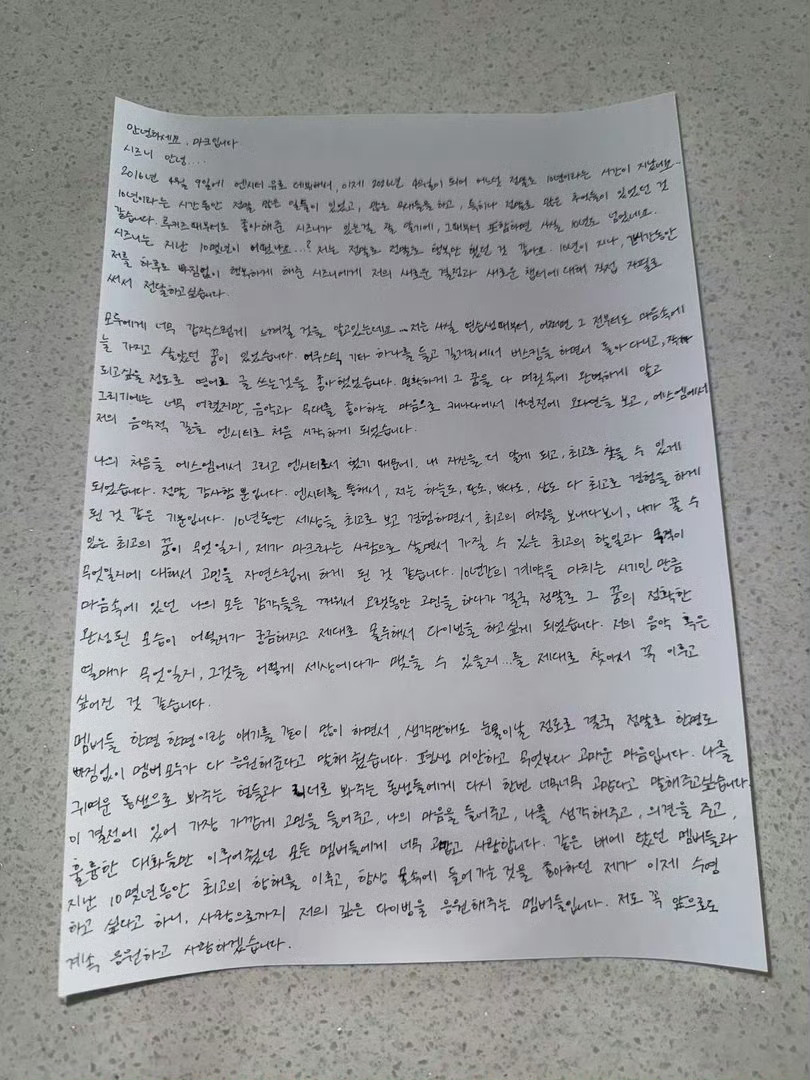 안녕하세요, 마크입니다
시즈니 안녕...
2016년 4월 9일에 엔시티 유로 데뷔해서, 이제 2026년 4월이 되어 어느새 정말로 10년이라는 시간이 지났네요..
10년이라는 시간동안 정말 많은 일들이 있었고, 많은 무대들을 하고, 특히나 정말로 많은 추억들이 있었던 것
같습니다. 루키즈때부터도 좋아해준 시즈니가 있는걸 잘 알기에, 그때부터 포함하면 사실 10년도 넘었네요.
시즈니는 지난 10몇년이 어땠나요...? 저는 정말로 정말로 행복만 했던 것 같아요. 10년이 지나, 긴 시간동안
저를 하루도 빠짐없이 행복하게 해준 시즈니에게 저의 새로운 결정과 새로운 챕터에 대해 직접 자필로
써서 전달하고싶습니다.
모두에게 너무 갑작스럽게 느껴질 것을 알고있는데요... 저는 사실 연습생때부터, 어쩌면 그 전부터도 마음속에
늘 가지고 살았던 꿈이 있었습니다. 어쿠스틱 기타 하나를 들고 길거리에서 버스킹을 하면서 돌아다니고, 작가
되고싶을 정도로 영어로 글 쓰는것을 좋아했었습니다. 명확하게 그 꿈을 다 머릿속에 완벽하게 알고
그리기에는 너무 어렸지만, 음악과 무대를 좋아하는 마음으로 캐나다에서 14년전에 오디션을 보고, 에스엠에서
저의 음악적 길을 엔시티로 처음 시작하게 되었습니다.
나의 처음을 에스엠에서 그리고 엔시티로서 했기 때문에, 내 자신을 더 알게 되고, 최고로 찾을 수 있게
되었습니다. 정말 감사할 뿐입니다. 엔시티를 통해서, 저는 하늘도, 땅도, 바다도, 산도 다 최고로 경험을 하게
된 것 같은 기분입니다. 10년동안 세상을 최고로 보고 경험하면서, 최고의 여정을 보내다보니, 내가 꿀 수
있는 최고의 꿈이 무엇일지, 제가 마크라는 사람으로 살면서 가질 수 있는 최고의 할일과 목적이
무엇일지에 대해서 고민을 자연스럽게 하게 된 것 같습니다. 10년간의 계약을 마치는 시기인 만큼
마음속에 있던 나의 모든 감각들을 깨워서 오랫동안 고민을 하다가 결국 정말로 그 꿈의 정확한
완성된 모습이 어떨지가 궁금해지고 제대로 몰두해서 다이빙을 하고싶게 되었습니다. 저의 음악 혹은
열매가 무엇일지, 그것을 어떻게 세상에다가 맺을 수 있을지...를 제대로 찾아서 꼭 이루고
싶어진 것 같습니다.
멤버들 한명 한명이랑 얘기를 같이 많이 하면서, 생각만해도 눈물이날 정도로 결국 정말로 한명도
빠짐없이 멤버 모두가 다 응원해준다고 말해줬습니다. 평생 미안하고 무엇보다 고마운 마음입니다. 나를
귀여운 동생으로 봐주는 형들과 리더로 봐주는 동생들에게 다시 한번 너무너무 고맙다고 말해주고싶습니다.
이 결정에 있어 가장 가깝게 고민을 들어주고, 나의 마음을 들어주고, 나를 생각해주고, 의견을 주고,
훌륭한 대화들만 이루어줬던 모든 멤버들에게 너무 고맙고 사랑합니다. 같은 배에 탔던 멤버들과
지난 10몇년동안 최고의 항해를 이루고, 항상 물속에 들어가는 것을 좋아하던 제가 이제 수영
하고 싶다고 하니, 사랑으로까지 저의 깊은 다이빙을 응원해주는 멤버들입니다. 저도 꼭 앞으로도
계속 응원하고 사랑하겠습니다.